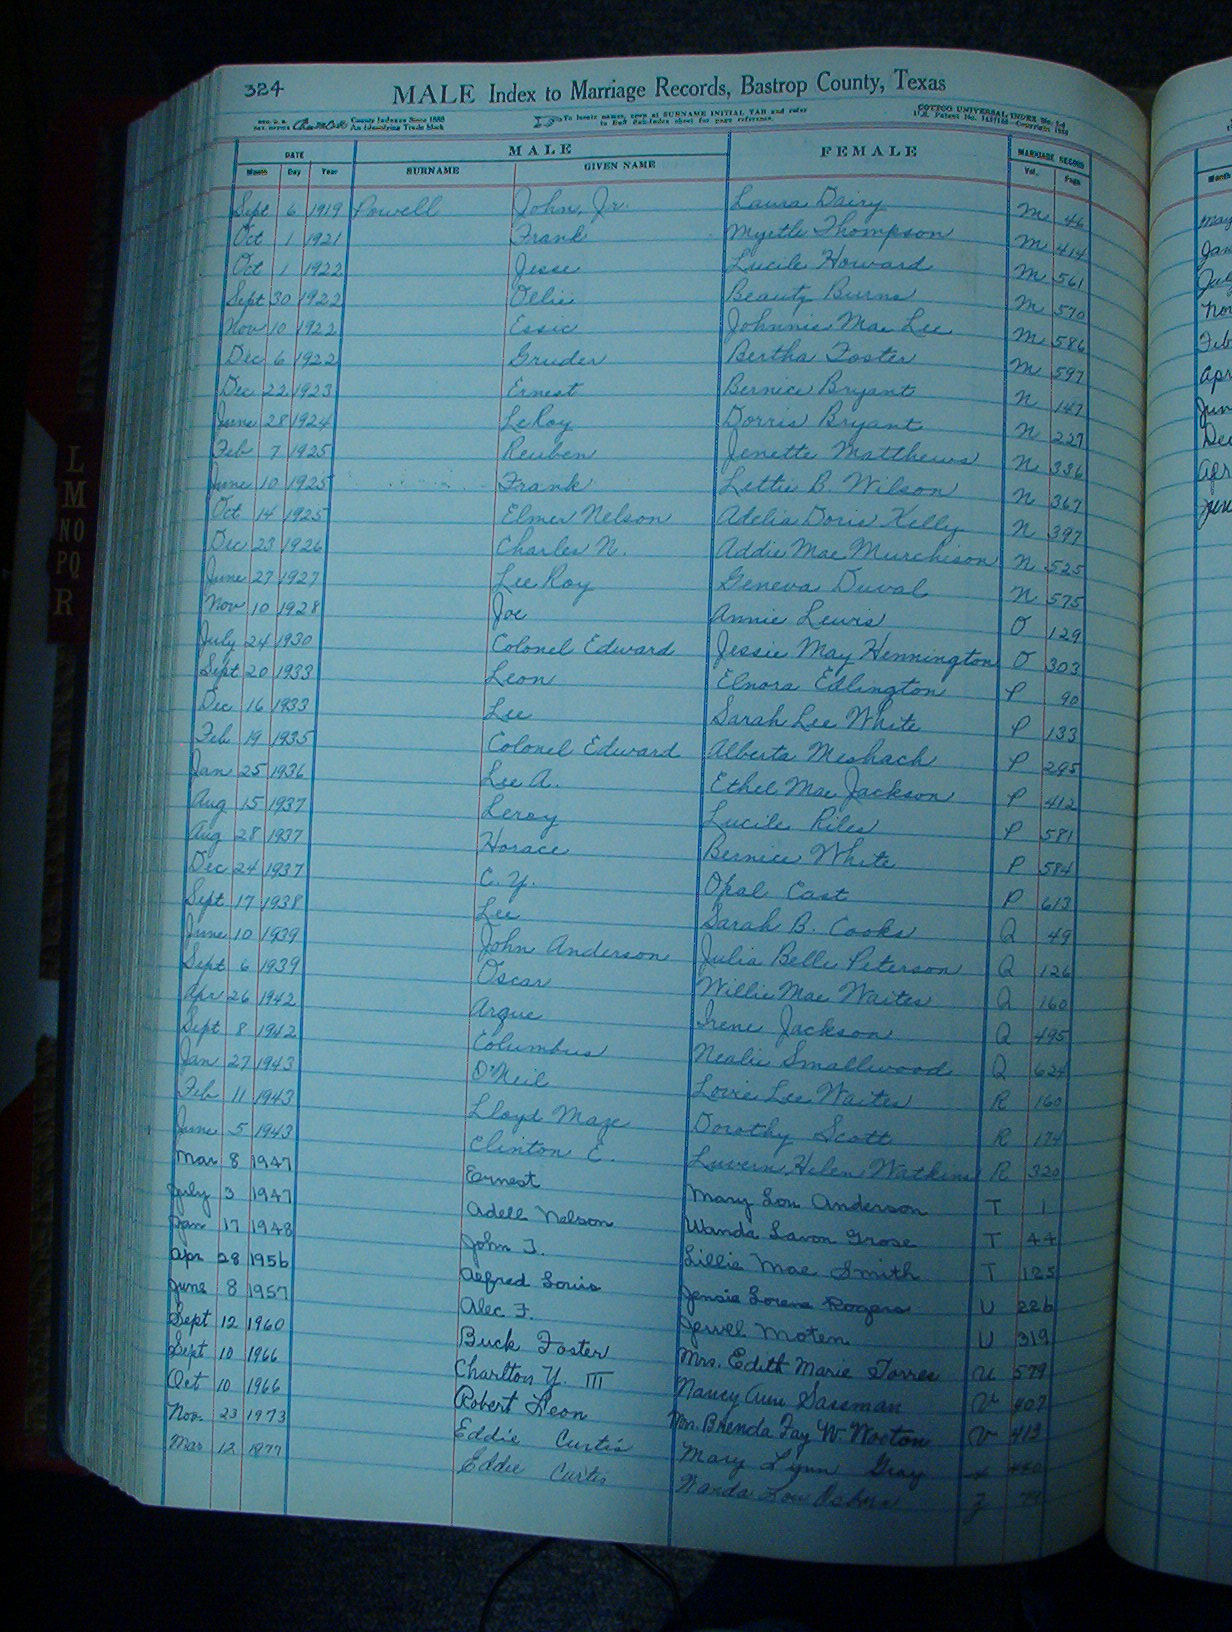 324
MALE Index to Marriage Records, Bastrop County, Texas
County Indexes Since 1888
An Identifying Trade Mark
To locate names, open at SURNAME INITIAL TAB and refer
to Buff Sub-Index sheet for page reference.
COTTCO UNIVERSAL INDEX
U.S. Patent No. Copyright
DATE MALE FEMALE MARRIAGE RECORD
Month Day Year SURNAME GIVEN NAME Vol. Page
Sept 6 1919 Powell John, Jr. Laura Dairy M 46
Oct 1 1921 Frank Myrtle Thompson M 414
Oct 1 1922 Jesse Lucile Howard M 561
Sept 30 1922 Ollie Beauty Burns M 570
Nov 10 1922 Essic Johnnie Mae Lee M 586
Dec 6 1922 Gruder Bertha Foster M 597
Dec 22 1923 Ernest Bernice Bryant N 147
June 28 1924 LeRoy Dorris Bryant N 227
Feb 7 1925 Reuben Jenette Matthews N 336
June 10 1925 Frank Lettie B. Wilson N 367
Oct 14 1925 Elmer Nelson Adelia Doris Kelly N 397
Dec 23 1926 Charles N. Addie Mae Murchison N 525
June 27 1927 Lee Roy Geneva Duval N 575
Nov 10 1928 Joe Annie Lewis O 129
July 24 1930 Colonel Edward Jessie May Hennington O 303
Sept 20 1933 Leon Elnora Edlington P 90
Dec 16 1933 Lee Sarah Lee White P 133
Feb 19 1935 Colonel Edward Alberta Meshach P 295
Jan 25 1936 Lee A. Ethel Mae Jackson P 412
Aug 15 1937 Leroy Lucile Riles P 581
Aug 28 1937 Horace Bernice White P 584
Dec 24 1937 C. Y. Opal Cast P 613
Sept 17 1938 Lee Sarah B. Cooks Q 49
June 10 1939 John Anderson Julia Belle Peterson Q 126
Sept 6 1939 Oscar Willie Mae Waites Q 160
Apr 26 1942 Argue Irene Jackson Q 495
Sept 8 1942 Columbus Nealie Smallwood Q 624
Jan 27 1943 O'Neil Lovie Lee Waites R 160
Feb 11 1943 Lloyd Mage Dorothy Scott R 174
June 5 1943 Clinton E. Luvern Helen Watkins R 320
Mar 8 1947 Ernest Mary Lou Anderson T 1
July 3 1947 Adell Nelson Wanda Lavon Grose T 44
Jan 17 1948 John T. Lillie Mae Smith T 125
Apr 28 1956 Alfred Louis Jensie Lorene Rogers U 226
June 8 1957 Alec F. Jewel Moten U 319
Sept 12 1960 Buck Foster Mrs. Edith Marie Torres U 579
Sept 10 1966 Charlton Y. III Nancy Ann Sassman V 407
Oct 10 1966 Robert Leon Mrs. Brenda Fay W. Wooton V 413
Nov. 23 1973 Eddie Curtis Mary Lynn Gray
Mar 12 1977 Eddie Curtis Wanda Lou Osborn Z
L
M
NO
PQ
R
Month
May
Jan
July
Nov
Feb
Apr
June
Dec
Apr
June